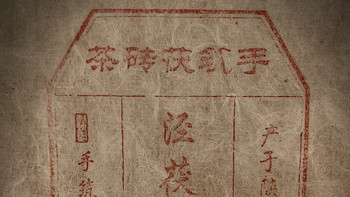 手筑茯砖茶
产于陕
泾茯
手筑